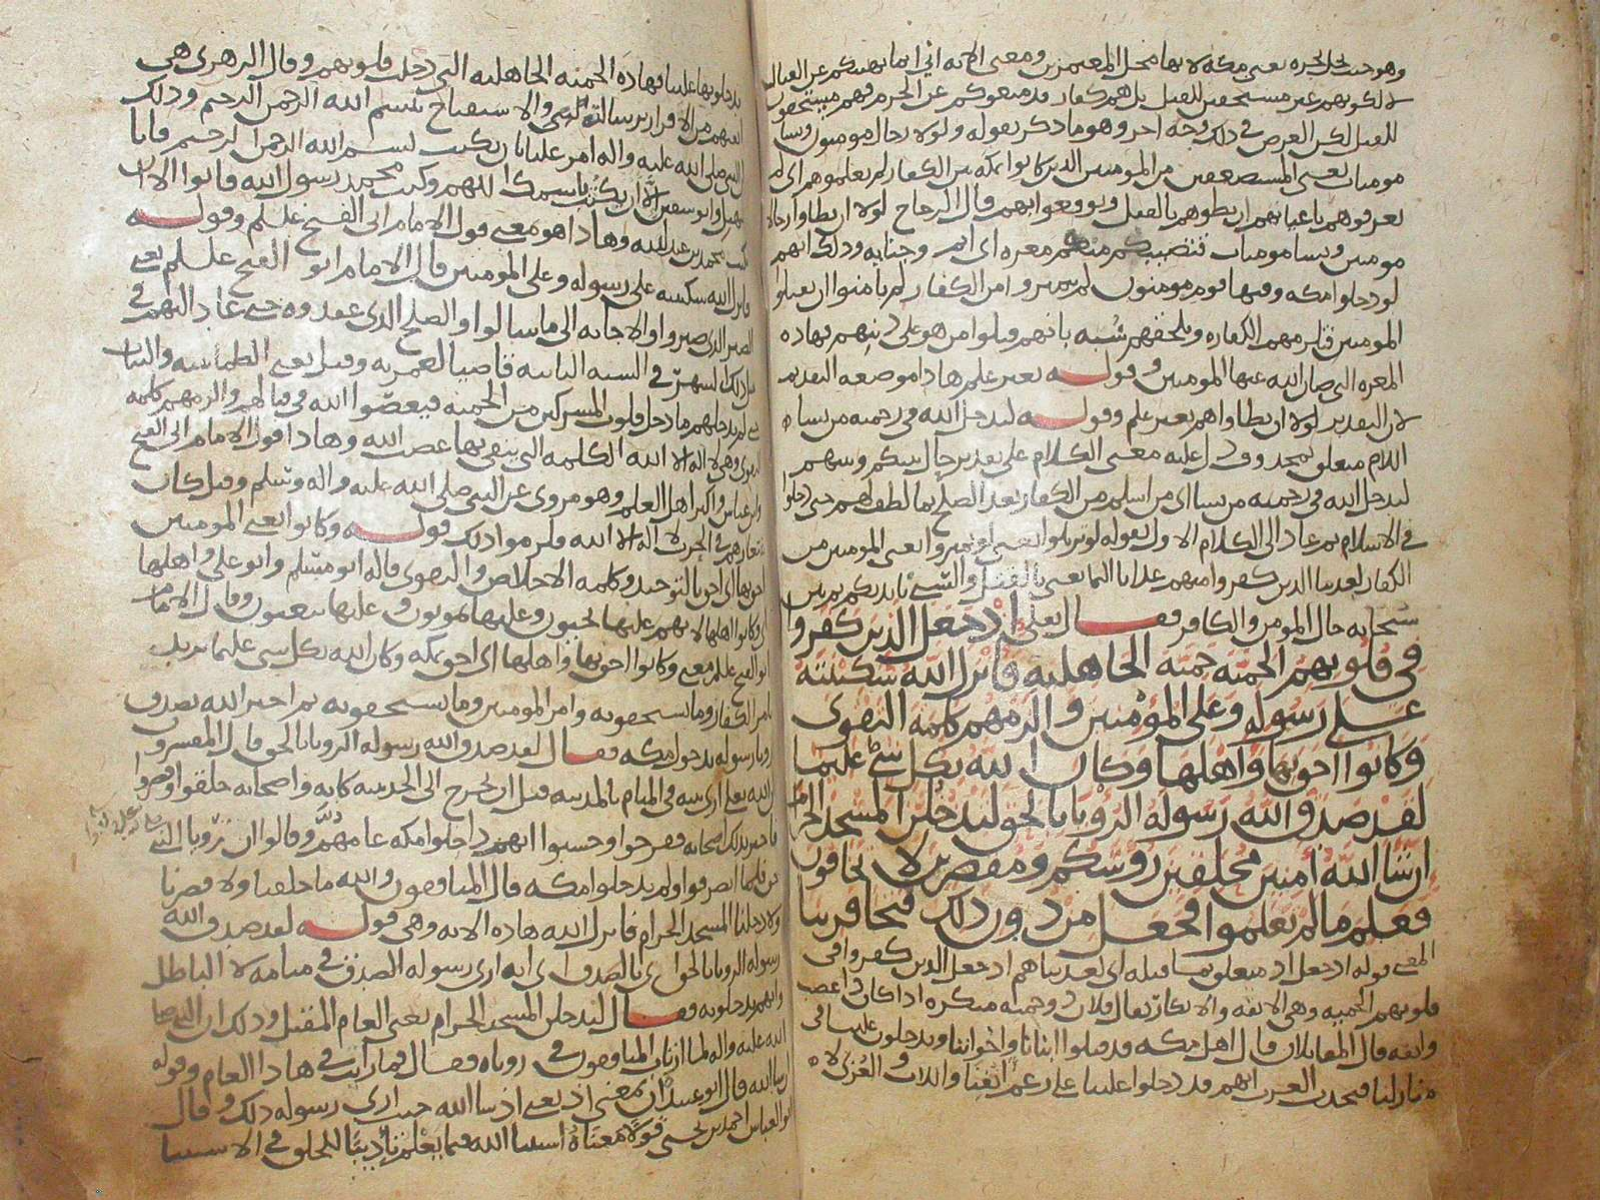 وهو حيث يحل نحره يعني مكة لانها محل المعتمرين ومعنى الاية اني انما نهيتكم عن القتال
لا لكونهم غير مستحقين للقتل بل هم كفار قد منعوكم عن الحرم فهم مستحقون
للقتل لكن الغرض في ذلك وجه اخر وهو ما ذكر بقوله ولولا رجال مومنون ونسا
مومنات يعني المستضعفين من المومنين الذين كانوا بمكة بين الكفار لم تعلموهم اي لم
تعرفوهم باعيانهم ان تطوهم بالقتل وتوقعوا بهم قال الزجاج لولا ان تطاوا رجالا
مومنين ونسا مومنات فتصيبكم منهم معره اي اثم وجنايه وذلك انهم
لو دخلوا مكه وفيها قوم مومنون لم يتميزوا من الكفار لم يامنوا ان يقتلوا
المومنين فتلزمهم الكفاره وتلحقهم سُبه بانهم قتلوا من هو على دينهم فهاذه
المعره التي صان الله عنها المومنين وقوله بغير علم هاذا موضعه التقديم
لان التقدير لولا ان تطاوهم بغير علم وقوله ليدخل الله في رحمته من يشاء
اللام متعلق بمحذوف دل عليه معنى الكلام على تقدير حال بينكم وبينهم
ليدخل الله في رحمته من يشا اي من اسلم من الكفار بعد الصلح بما لطف لهم حتى دخلوا
في الاسلام ثم عاد الى الكلام الاول بقوله لو تزيلوا يعني لو تميزوا يعني المومنين من
الكفار لعذبنا الذين كفروا منهم عذابا اليما يعني بالقتل والسبي بايديكم ثم بين
سبحانه حال المومن والكافر فقال تعلى اذ جعل الذين كفروا
في قلوبهم الحمية حمية الجاهلية فانزل الله سكينته
على رسوله وعلى المؤمنين والزمهم كلمة التقوى
وكانوا احق بها واهلها وكان الله بكل شي عليما
لقد صدق الله رسوله الرويا بالحق لتدخلن المسجد الحرام
ان شا الله امنين محلقين روسكم ومقصرين لا تخافون
فعلم ما لم تعلموا فجعل من دون ذلك فتحا قريبا
المعنى قوله اذ جعل اذ متعلق بما قبله اي لعذبناهم اذ جعل الذين كفروا في
قلوبهم الحمية وهي الانفة والانكار يقال فلان ذو حمية منكره اذا كان ذا غضب
وانفه قال المقاتلان قال اهل مكه قد قتلوا ابنانا واخواننا ويدخلون علينا في
منازلنا فتحدث العرب انهم قد دخلوا علينا على رغم انفنا واللات والعزى لا
يدخلونها علينا فهاذه الحمية الجاهلية التي دخلت قلوبهم وقال الزهري هي
انفتهم من الاقرار برسالة النبي والاستفتاح ببسم الله الرحمن الرحيم وذلك
ان النبي صلى الله عليه واله امر عليا بان يكتب بسم الله الرحمن الرحيم فابا
سهيل وابو سفين الا ان يكتب باسمك اللهم وكتب محمد رسول الله فابوا الا ان
يكتب محمد بن عبد الله وهاذا هو معنى قول الامام ابي الفتح علم وقوله
فانزل الله سكينته على رسوله وعلى المومنين قال الامام ابو الفتح علسلم يعني
الصبر الذي صبروا والاجابه الى ما سالوا والصلح الذي عقدوه حتى عاد اليهم في
مثل ذلك الشهر في السنه الثانيه قاضيا لعمرته وقيل يعني الطمانينه والثبات
حتى لم يدخلهم ما دخل قلوب المشركين من الحمية فيعصوا الله في قتالهم والزمهم كلمه
التقوى وهي لا اله الا الله الكلمه التي يتقى بها غضب الله وهاذا قول الامام ابي الفتح
وابن عباس واكثر اهل العلم وهو مروى عن النبي صلى الله عليه واله وسلم وقيل كان
شعارهم في الحرب لا اله الا الله فلزموا ذلك قوله وكانوا يعني المومنين
احق بها اي احق بالتوحيد وكلمه الاخلاص والتقوى قاله ابو مسلم وابو علي واهلها
اي وكانوا اهلها لانهم عليها يحيون وعليها يموتون وعليها يبعثون وقال الامام
ابو الفتح علم معنى وكانوا احق بها واهلها اي احق بمكه وكان الله بكل شي عليما يريد
بامر الكفار وما يستحقونه وامر المومنين وما يستحقونه ثم اخبر الله بصدق
رويا رسوله بدخول مكه فقال لقد صدق الله رسوله الرويا بالحق قال المفسرون
ان الله تعلى ارى نبيه في المنام بالمدينه قبل ان يخرج الى الحديبيه كانه واصحابه حلقوا وقصروا
فاخبر بذلك اصحابه ففرحوا وحسبوا انهم داخلوا مكه عامهم وقالوا ان رويا النبي
حق فلما انصرفوا ولم يدخلوا مكه قال المنافقون والله ما حلقنا ولا قصرنا
ولا دخلنا المسجد الحرام فانزل الله هاذه الايه وهي قوله لقد صدق الله
رسوله الرويا بالحق اي بالصدق اي انه ارى رسوله الصدق في منامه لا الباطل
وانهم يدخلونه فقال لتدخلن المسجد الحرام يعني العام المقبل وذلك ان النبي صلى
الله عليه واله لما ارتاب المنافقون في روياه فقال فما رايت في هاذا العام وقوله
ان شا الله قال ابو عبيد ان بمعنى اذ يعني اذ شا الله حيث ارى رسوله ذلك وقال
ابو العباس احمد بن يحيى قولا معناه استثنا الله فيما يعلم تاديبا للخلق في الاستثنا